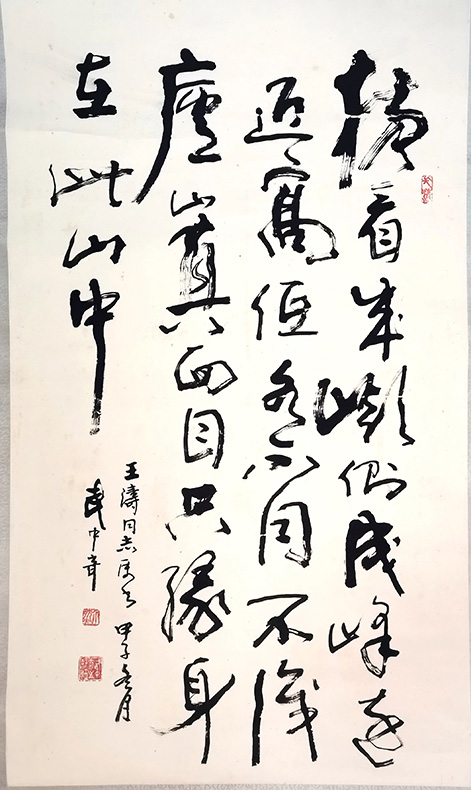 横看成嶺側成峰遠
近高低各不同不識
廬山真面目只緣身
在此山中
王濤同志属 甲子冬月
武中奇